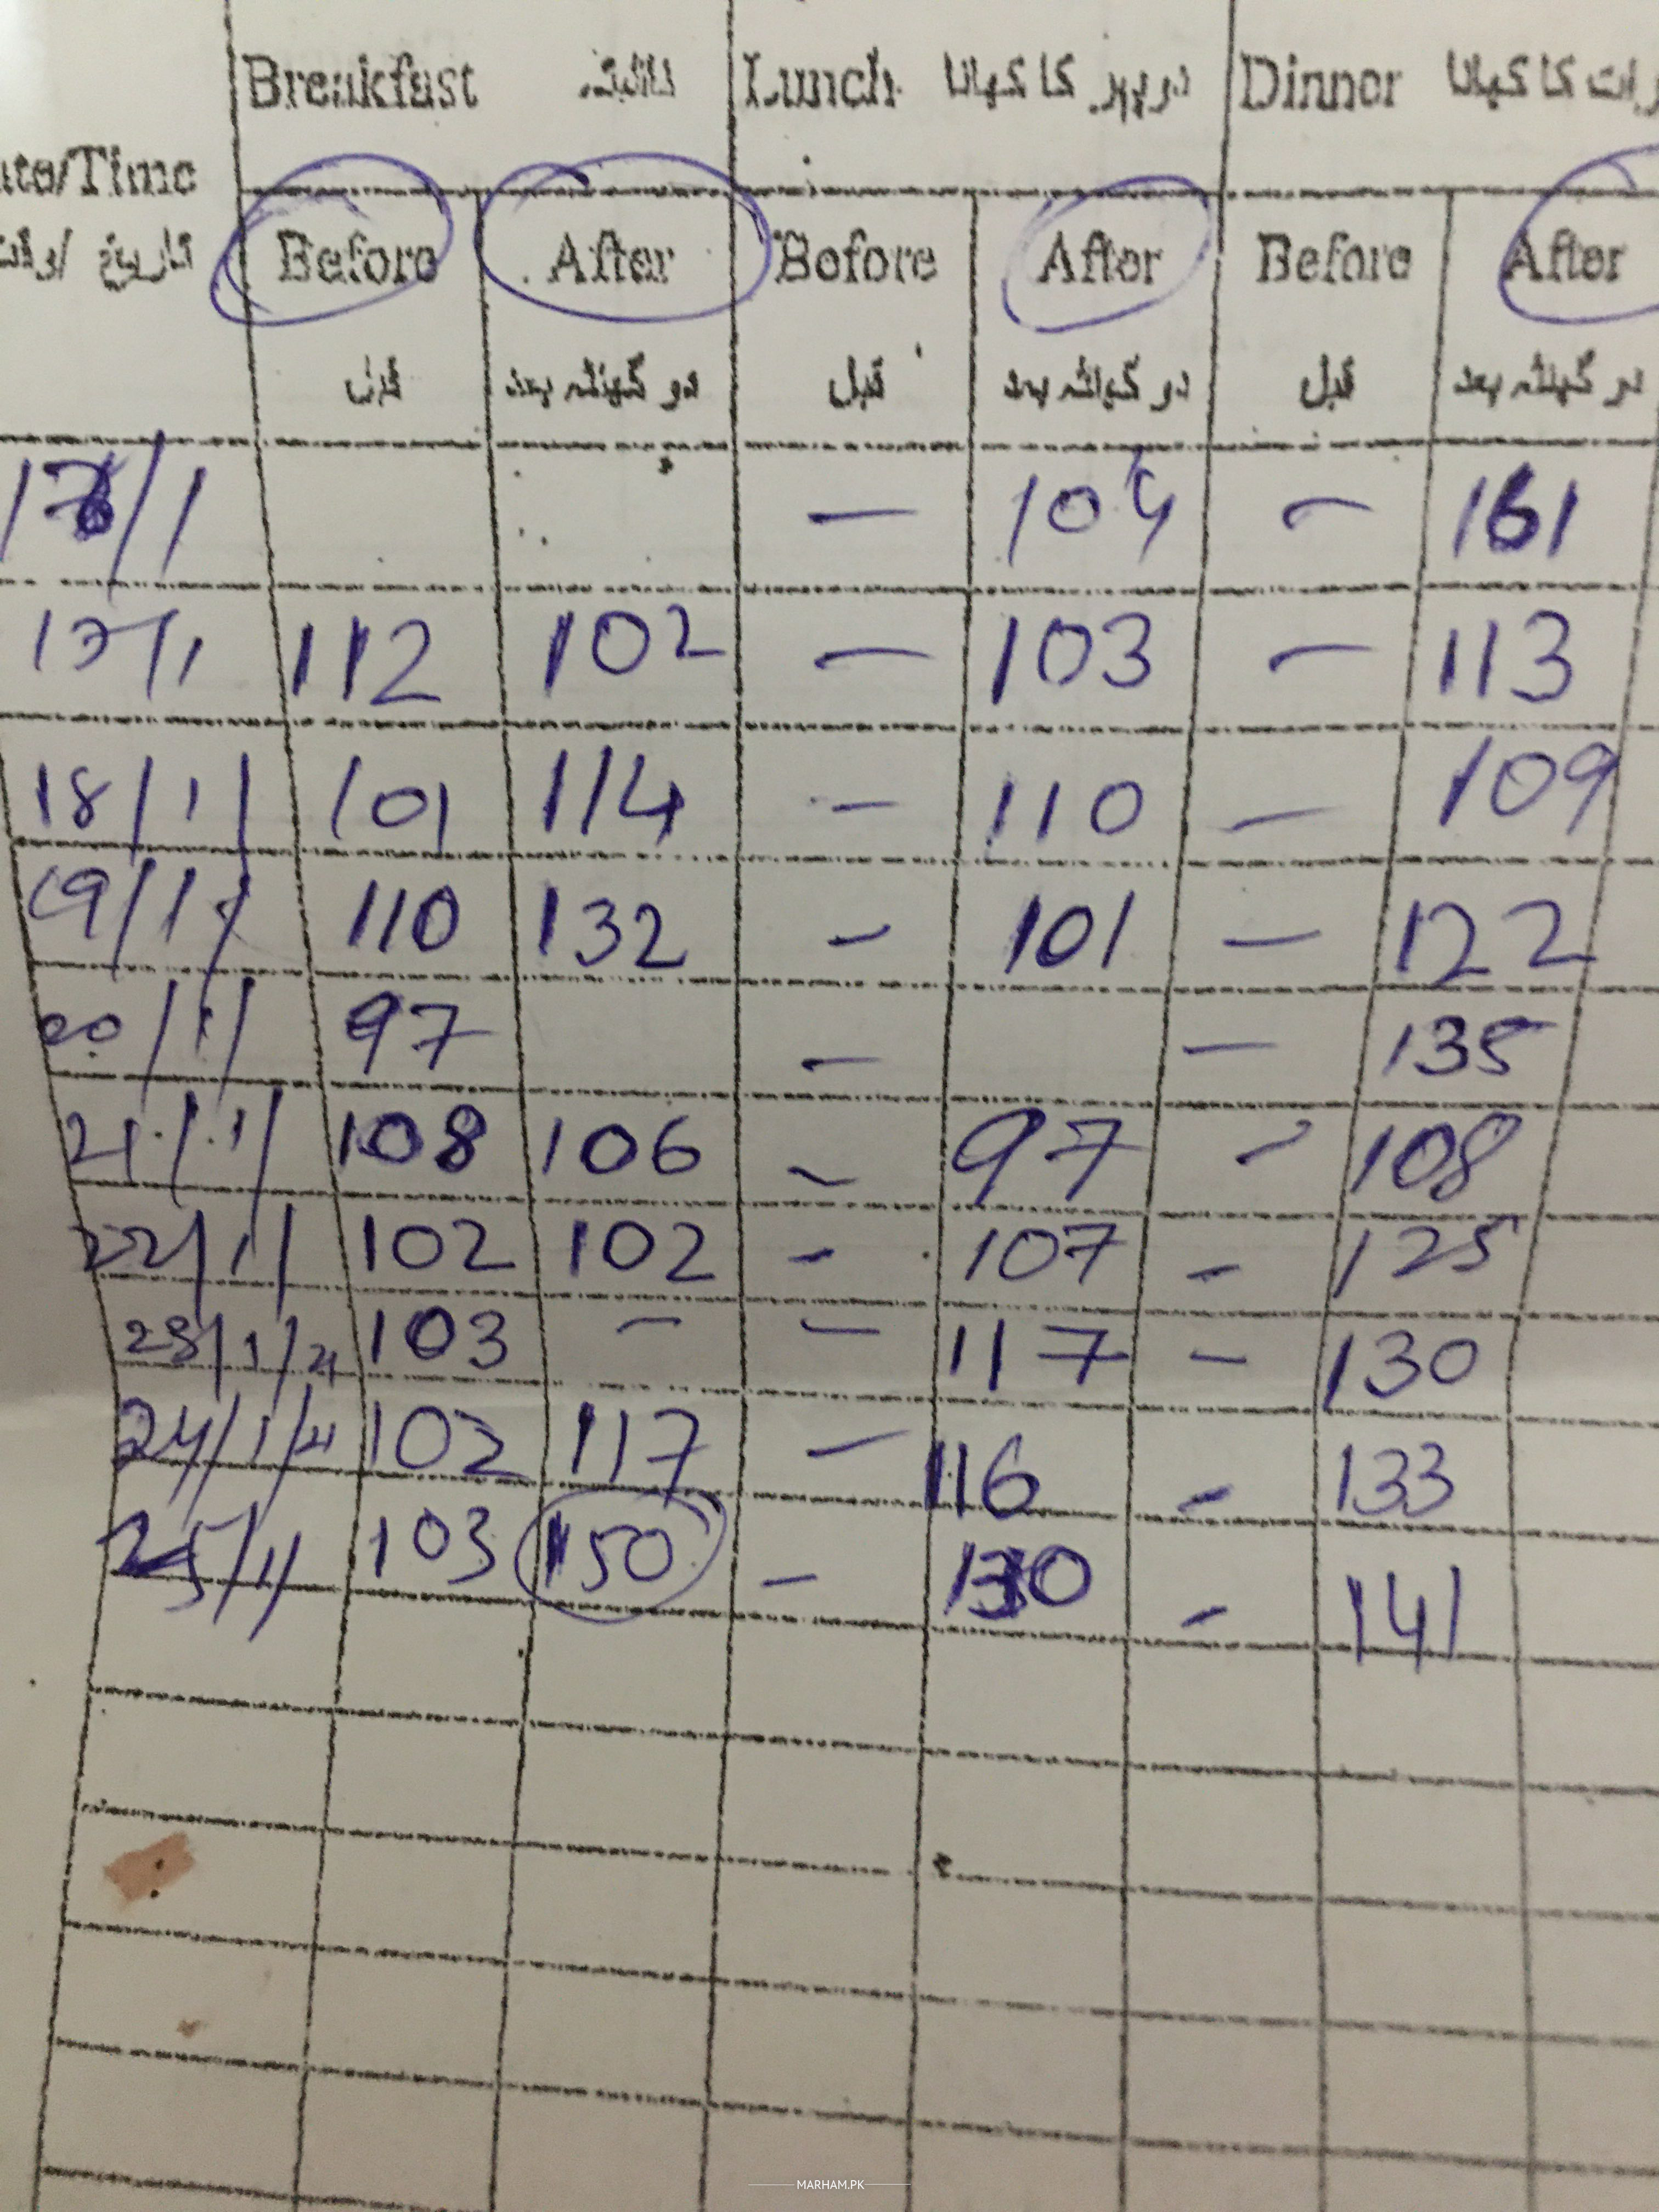 Breakfast ناشتہ Lunch دوپہر کا کھانا Dinner رات کا کھانا
ate/Time
Before After Before After Before After
تاریخ / وقت
قبل دو گھنٹہ بعد قبل دو گھنٹہ بعد قبل دو گھنٹہ بعد
16/1 — 104 — 161
17/1 112 102 — 103 — 113
18/1/ 101 114 — 110 — 109
19/1/ 110 132 — 101 — 122
20/1/ 97 — — 135
21/1/ 108 106 — 97 — 108
22/1/ 102 102 - 107 - 125
23/1/21 103 — — 117 - 130
24/1/21 102 117 — 116 - 133
25/1/ 103 150 - 130 - 141
MARHAM.PK